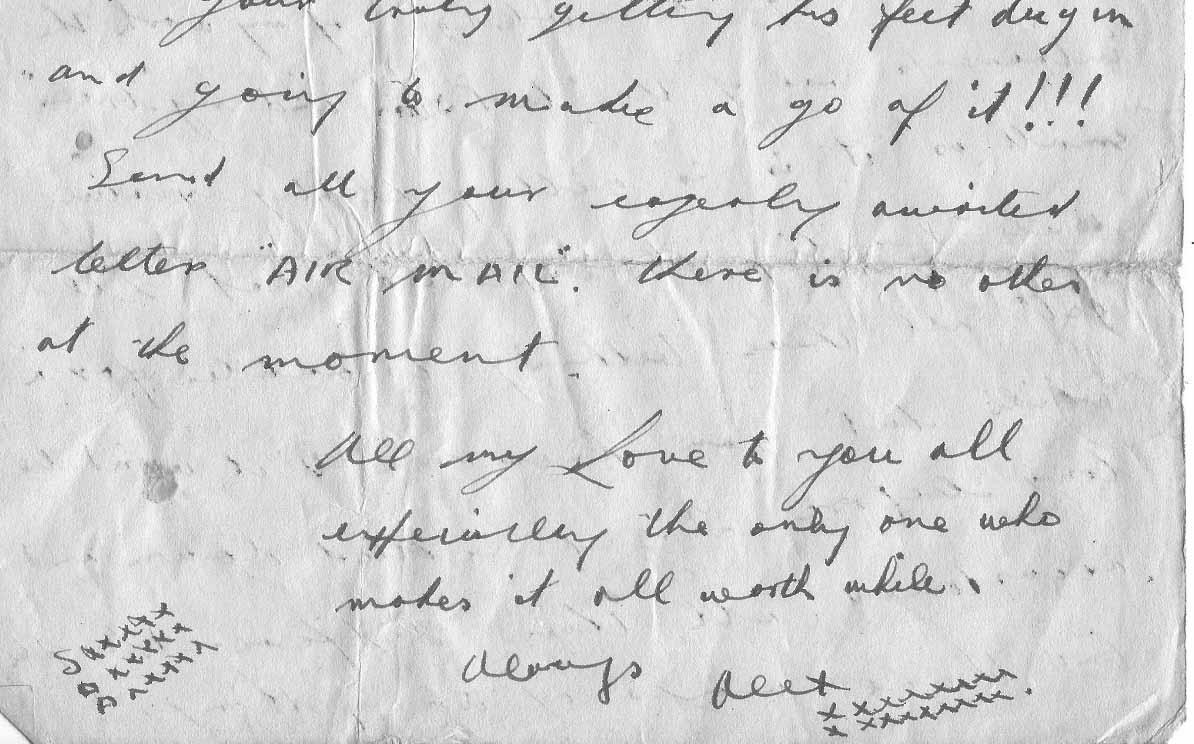 your truly getting his feet dug in
and going to make a go of it!!!
Send all your eagerly awaited
letters "AIR MAIL". there is no other
at the moment.
All my Love to you all
especially the only one who
makes it all worth while.
Always Alex xxxxxxxx
x xxxxxxxx.
S xxxxx
D xxxxx
D xxxxx